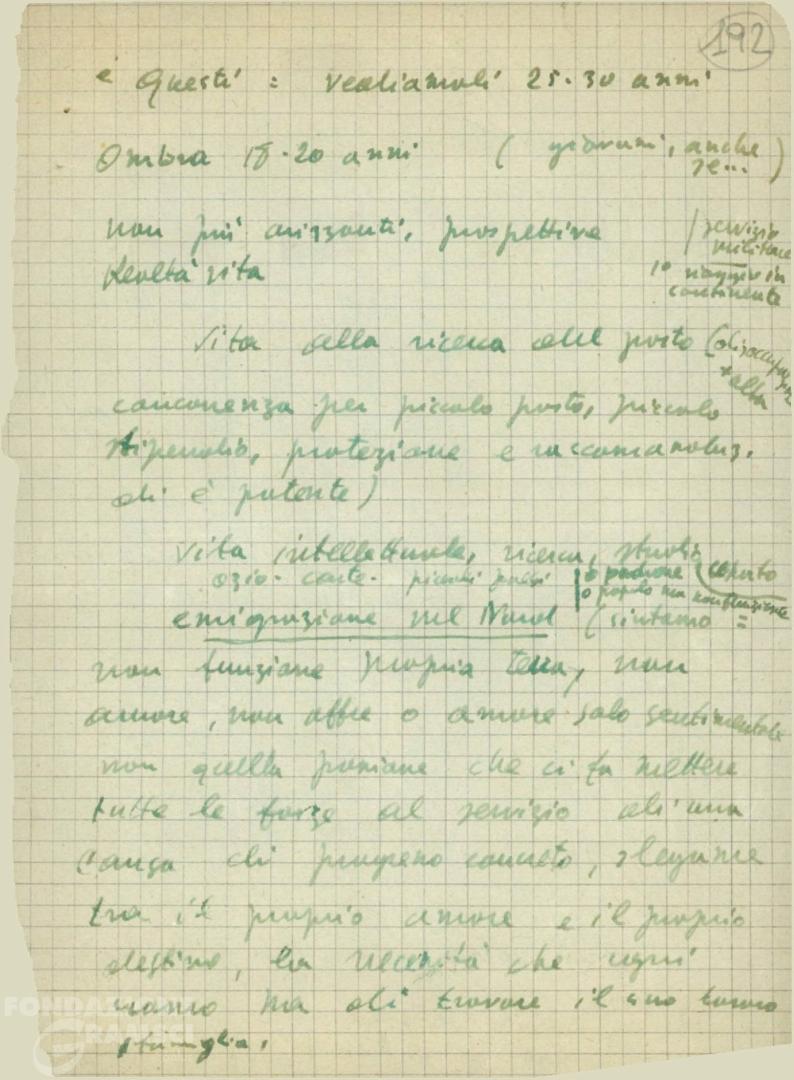 192
e Questi : vediamoli 25-30 anni
Ombra 18-20 anni ( giovani, anche se... )
non più orizzonti, prospettive
servizio militare
1° viaggio in continente
Realtà vita
Vita della ricerca del posto (disoccupaz. + alta
concorrenza per piccolo posto, piccolo
stipendio, protezione e raccomandaz.
di è potente)
vita intellettuale, ricerca, studio
ozio - carte - piccoli paesi
o padrone
o popolo ma non funzione
emigrazione nel Nord (sintomo =
non funzione propria terra, non
amore, non offre o amore solo sentimentale
non quella passione che ci fa mettere
tutte le forze al servizio di una
causa di progresso concreto, slegame
tra il proprio amore e il proprio
destino, la necessità che ogni
uomo ha di trovare il suo lavoro
famiglia.
FONDAZIONE GRAMSCI